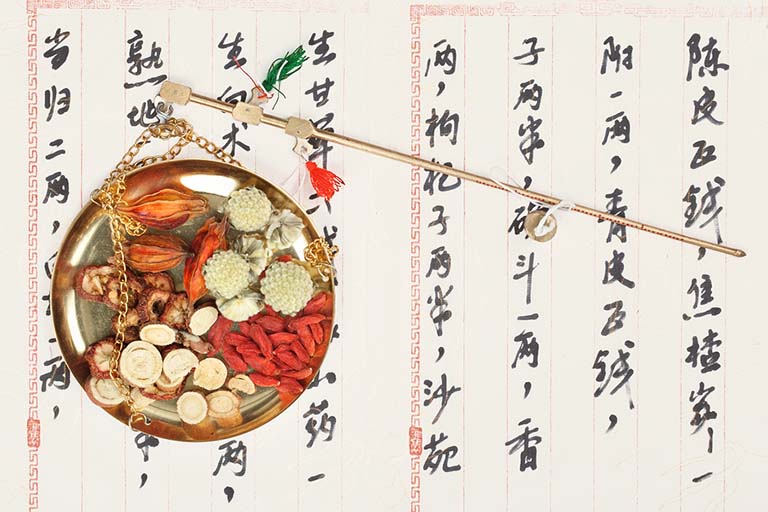 陈皮五钱，焦楂炭，一
附一两，青皮五钱，
子两半，斗一两，香
两，枸杞子两半，沙苑
生甘草六 山药一
生白术 两，
熟地
当归二两，一两，